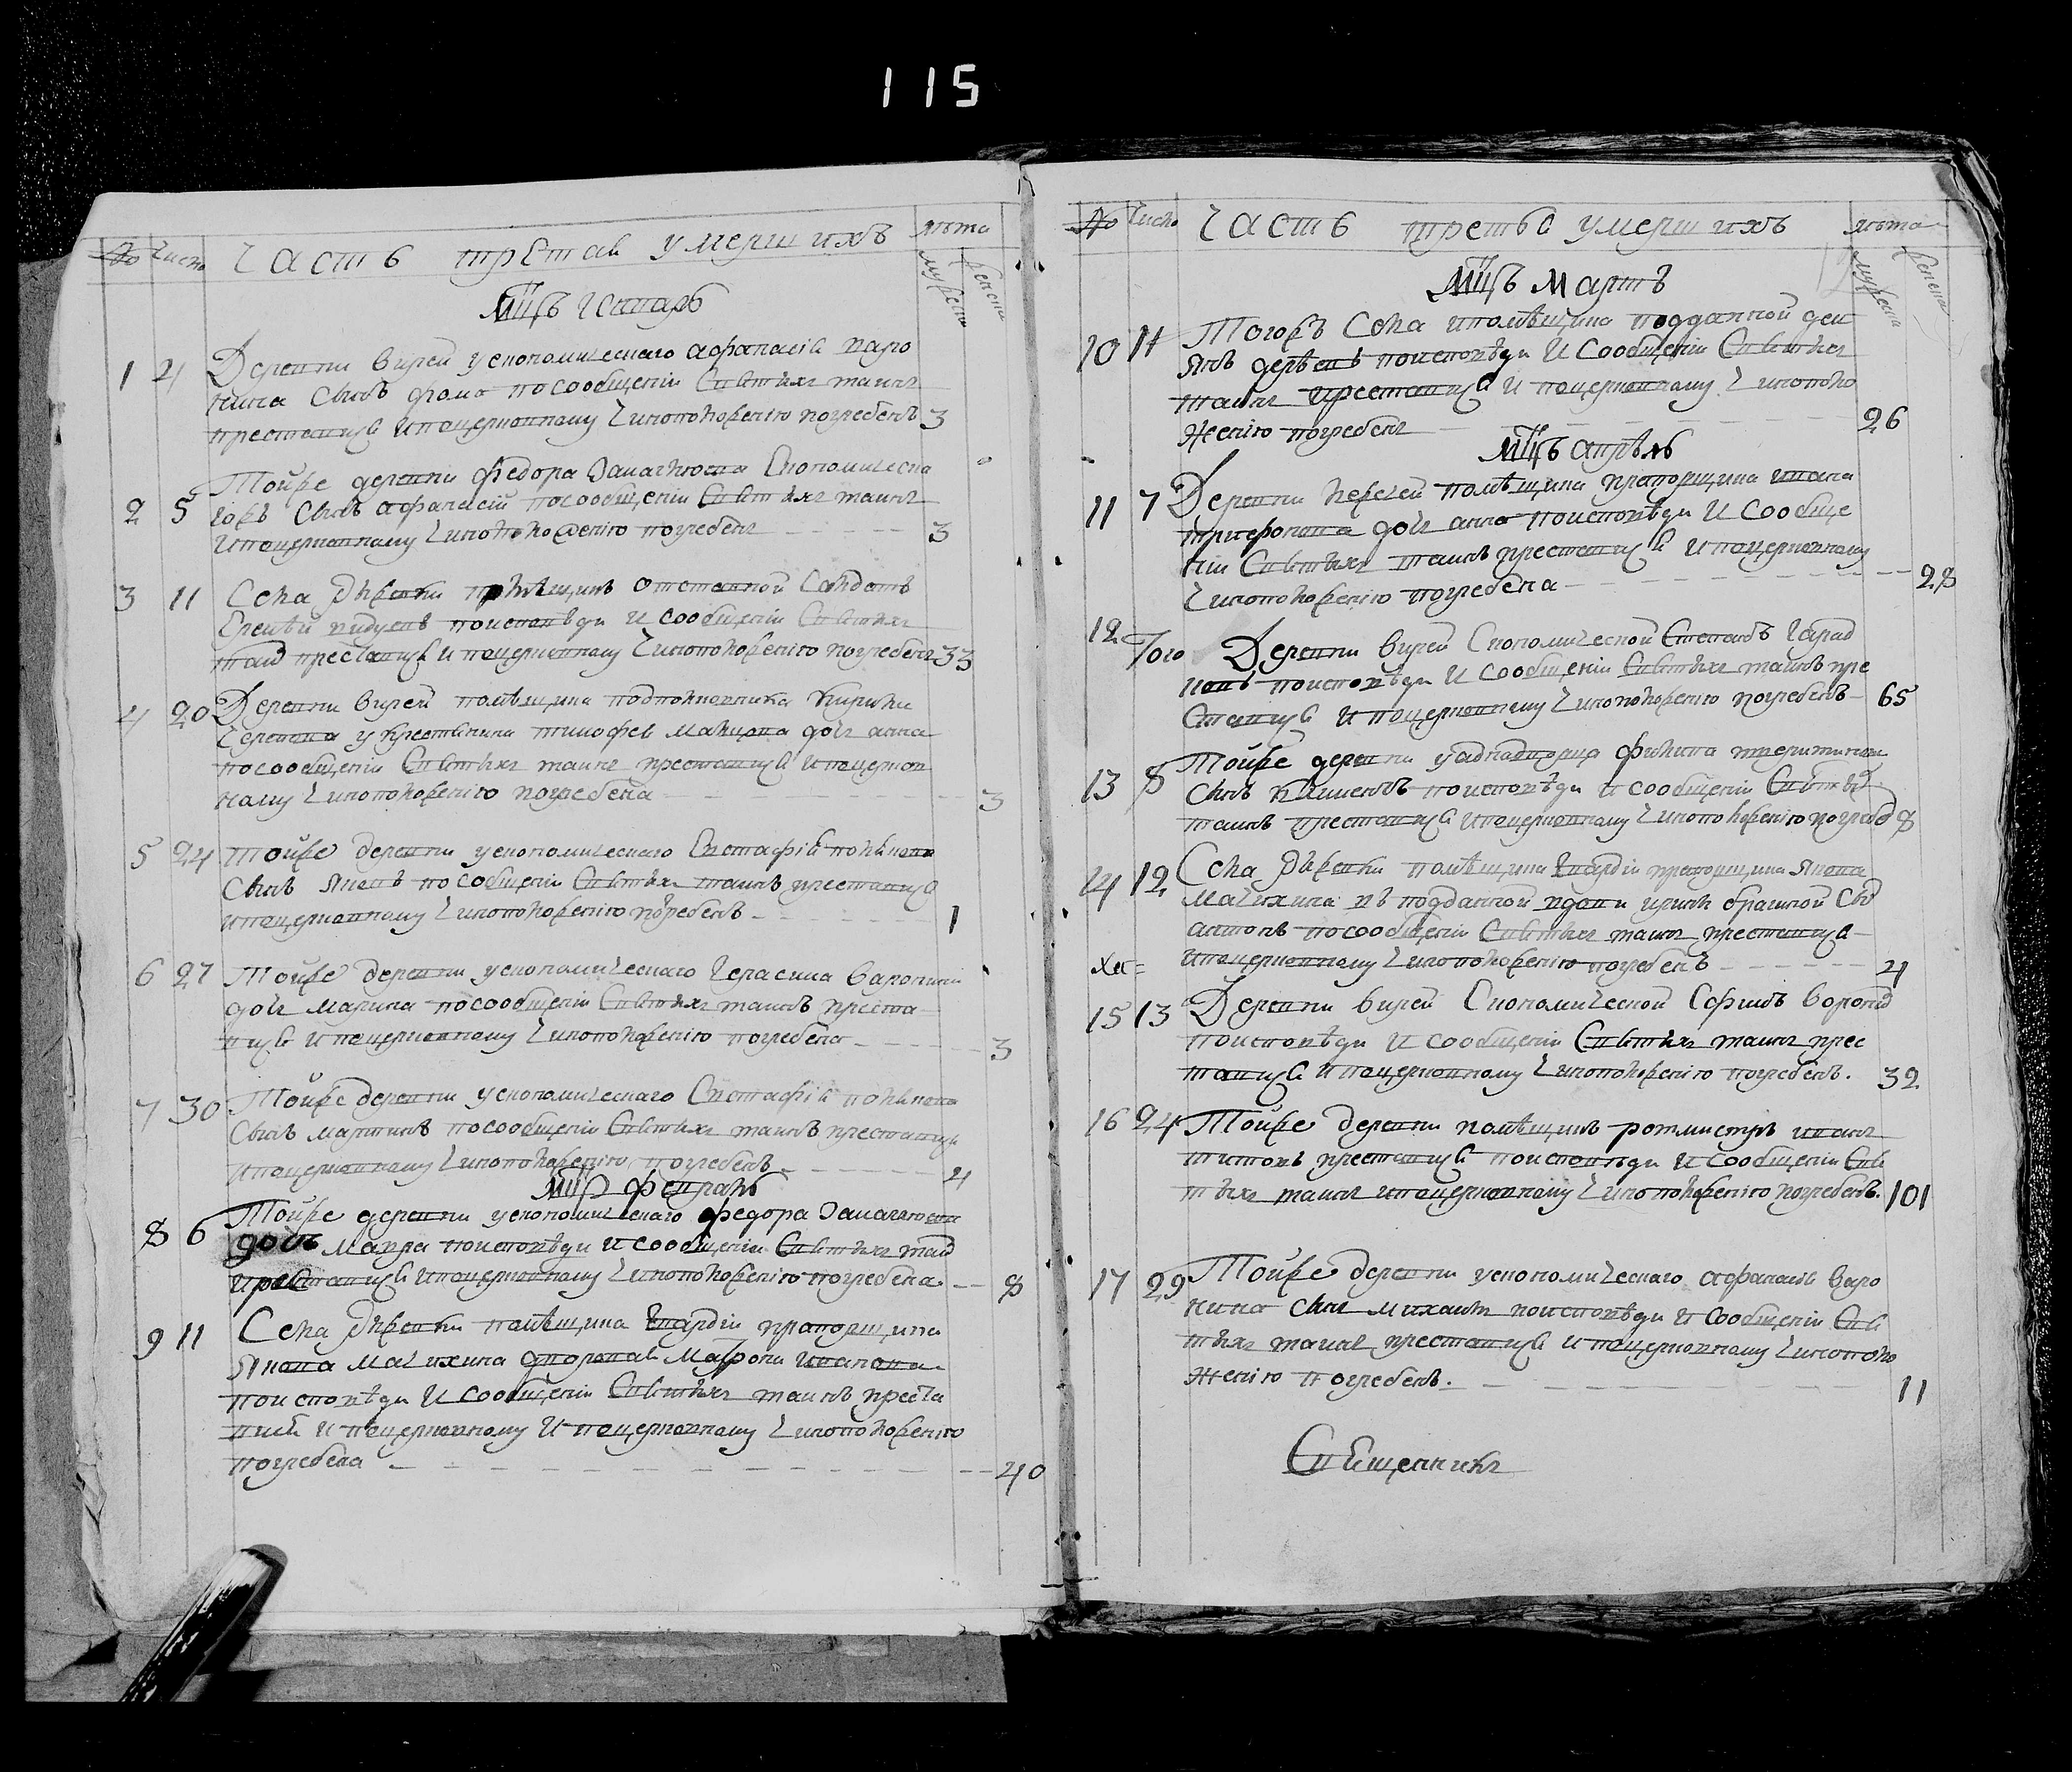 115
№ число Часть третая умершихъ лѣта
мужеска женска
Мцъ Генварь
1 4 Деревни вирей у економическаго афанасія варо
нина Сынъ фома по сообщеніи Святыхъ таинъ
преставися и поцерковному чиноположенію погребенъ 3
Тойже деревни федора Економическа
2 5 гожъ Сынъ афанасій посообщеніи Святыхъ таинъ
ипоцерковному чиноположенію погребенъ 3
3 11 Села помѣщикъ отставной Салдатъ
поисповѣди и сообщеніи Святыхъ
таи преставися и поцерковному чиноположенію погребенъ 33
4 20 Деревни вирей помѣщика подполковника
у крестьянина тимофея дочь анна
посообщеніи Святыхъ таинъ преставися ипоцерков
ному чиноположенію погребена 3
5 24 тойже деревни у економическаго Евстафія
Сынъ яковъ по сообщеніи Святыхъ таинъ преставися
ипоцерковному чиноположенію погребенъ 1
6 27 Тойже деревни у економическаго Герасима варонини
дочь марина посообщеніи Святыхъ таинъ преста
вися и поцерковному чиноположенію погребена 3
7 30 Тойже деревни у економическаго Евстафія
Сынъ мартинъ посообщеніи Святыхъ таинъ преставися
ипоцерковному чиноположенію погребенъ 4
Мцъ февраль
8 6 Тойже деревни у економическаго федора
дочь мавра поисповѣди и сообщеніи Святыхъ таи
преставися ипоцерковному чиноположенію погребена 8
9 11 Села помѣщика гвардіи прапорщика
якова дворовая иванова
поисповѣди и сообщеніи Святыхъ таинъ преста
вися и поцерковному и поцерковному чиноположенію
погребена 40
№ число Часть третья умершихъ лѣта
мужеска женска
Мцъ Мартъ
10 11 Тогожъ Села помѣщика подданной
поисповѣди и сообщеніи Святыхъ
таинъ преставися и поцерковному чинополо
женію погребенъ 26
Мцъ апрѣль
11 7 Деревни помѣщика прапорщика ивана
трифонова дочь анна поисповѣди и сообще
ніи Святыхъ таинъ преставися и поцерковному
чиноположенію погребена 28
12 того Деревни вирей Економической Степанъ
поисповѣди и сообщеніи Святыхъ таинъ пре
ставися и поцерковному чиноположенію погребенъ 65
13 8 Тойже деревни уаднадворца филипа
Сынъ поисповѣди и сообщеніи Святыхъ
таинъ преставися ипоцерковному чиноположенію погреб 8
14 12 Села помѣщика гвардіи прапорщика якова
подданной вдови ирини Сы
антонъ посообщеніи Святыхъ таинъ преставися
ипоцерковному чиноположенію погребенъ 4
15 13 Деревни вирей Економической
поисповѣди и сообщеніи Святыхъ таинъ прес
тавися ипоцерковному чиноположенію погребенъ. 32
16 24 Тойже деревни помѣщикъ ротмистръ иванъ
титовъ преставися поисповѣди и сообщеніи Свя
тыхъ таинъ ипоцерковному чиноположенію погребенъ. 101
17 29 Тойже деревни у економическаго афанасія варо
нина Сынъ михаилъ поисповѣди и сообщеніи Свя
тыхъ таинъ преставися и поцерковному чинополо
женію погребенъ. 11
Священникъ